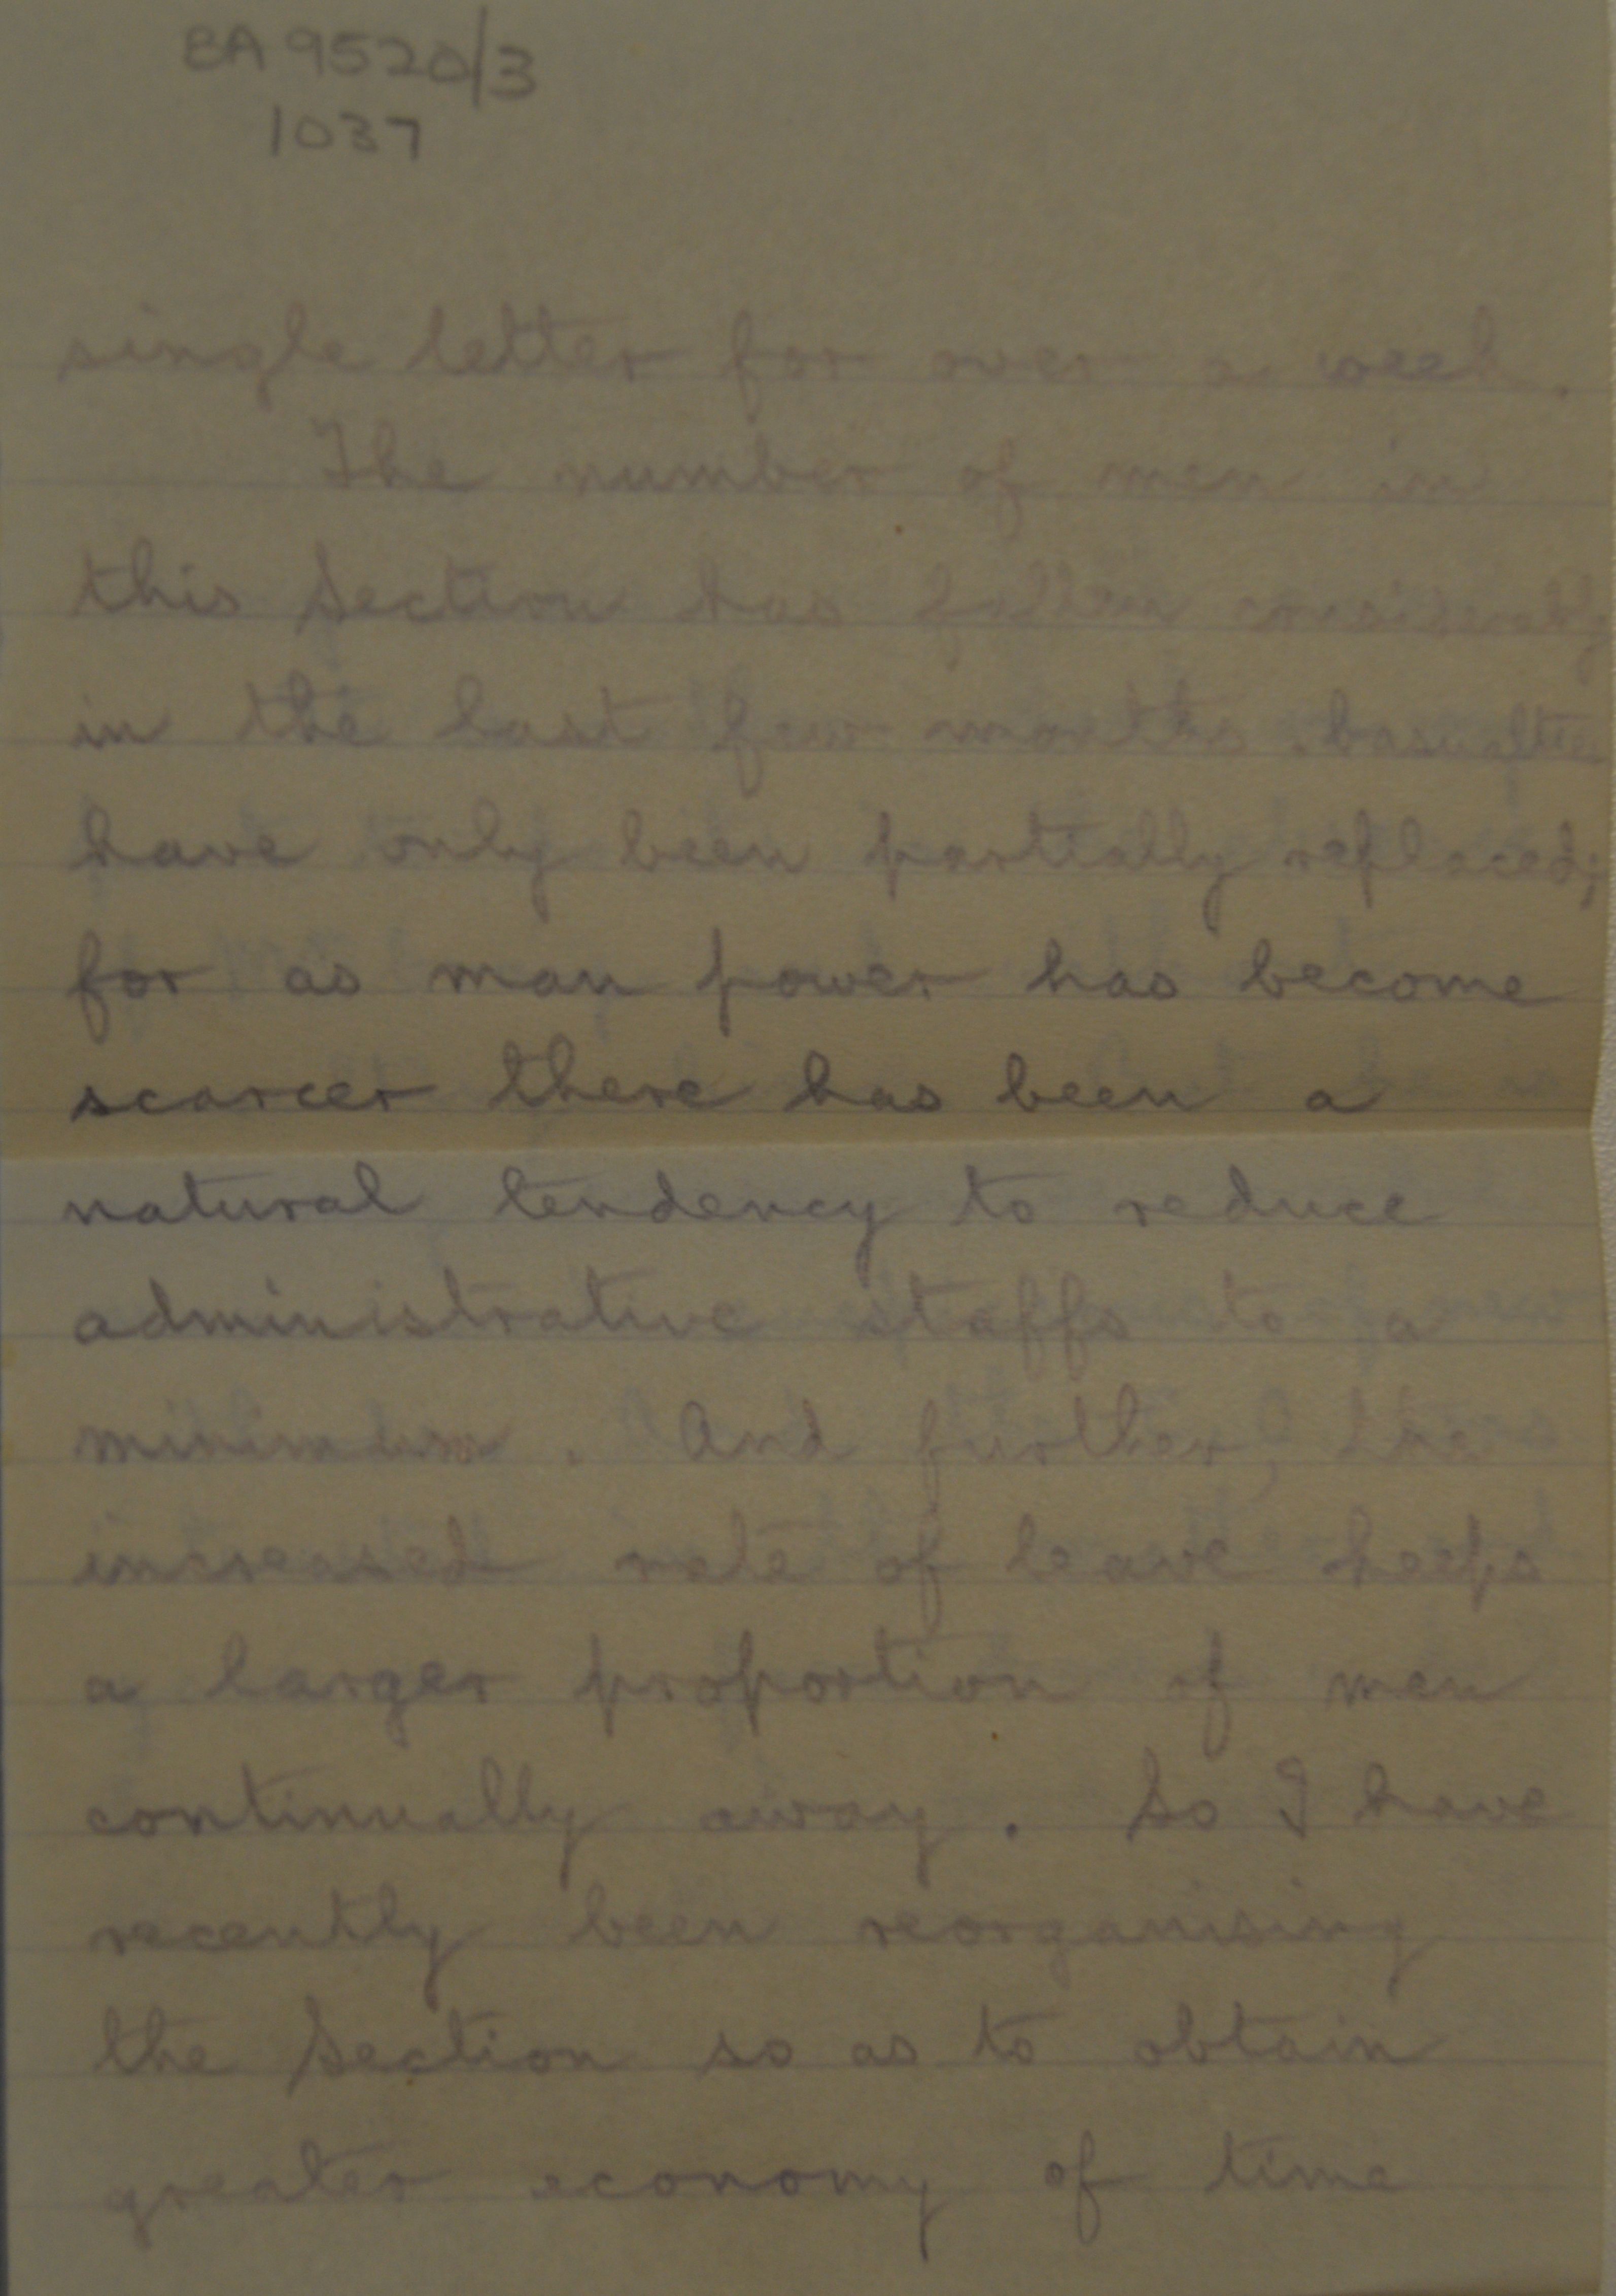 EA 9520/3
1037
single letter for over a week.
The number of men in
this Section has fallen considerably
in the last few months. Casualties
have only been partially replaced;
for as man power has become
scarcer there has been a
natural tendency to reduce
administrative staffs to a
minimum. And further, the
increased rate of leave keeps
a larger proportion of men
continually away. So I have
recently been reorganising
the Section so as to obtain
greater economy of time